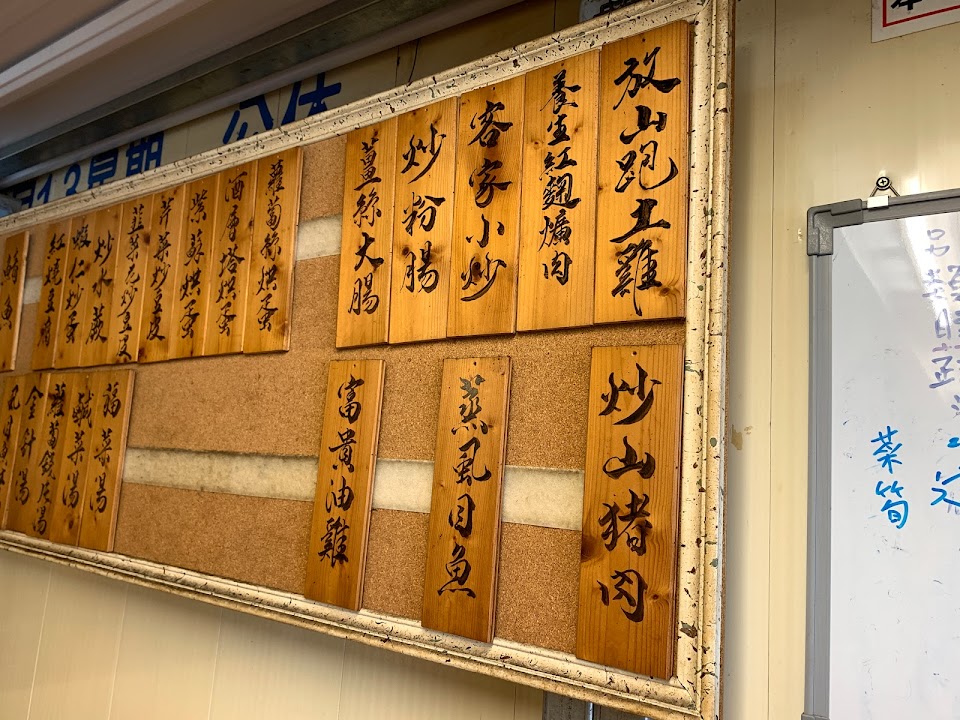 放山跑土雞
養生紅麴爌肉
客家小炒
炒粉腸
薑絲大腸
蘿蔔絲烘蛋
酒香塔烘蛋
紫蘇烘蛋
芹菜炒豆皮
韭菜花炒豆皮
炒水蕨
蝦仁炒蛋
紅燒豆腐
魚
炒山豬肉
蒸虱目魚
富貴油雞
福菜湯
鹹菜湯
蘿蔔錢片湯
金針湯
13星期 公休
菜筍